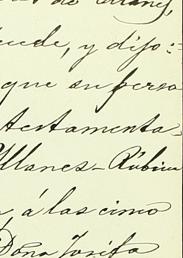 de Ullanes,
cede, y dijo:
que su perso
testamenta-
Ullanes-Rubin
y á las cinco
Doña Josefa